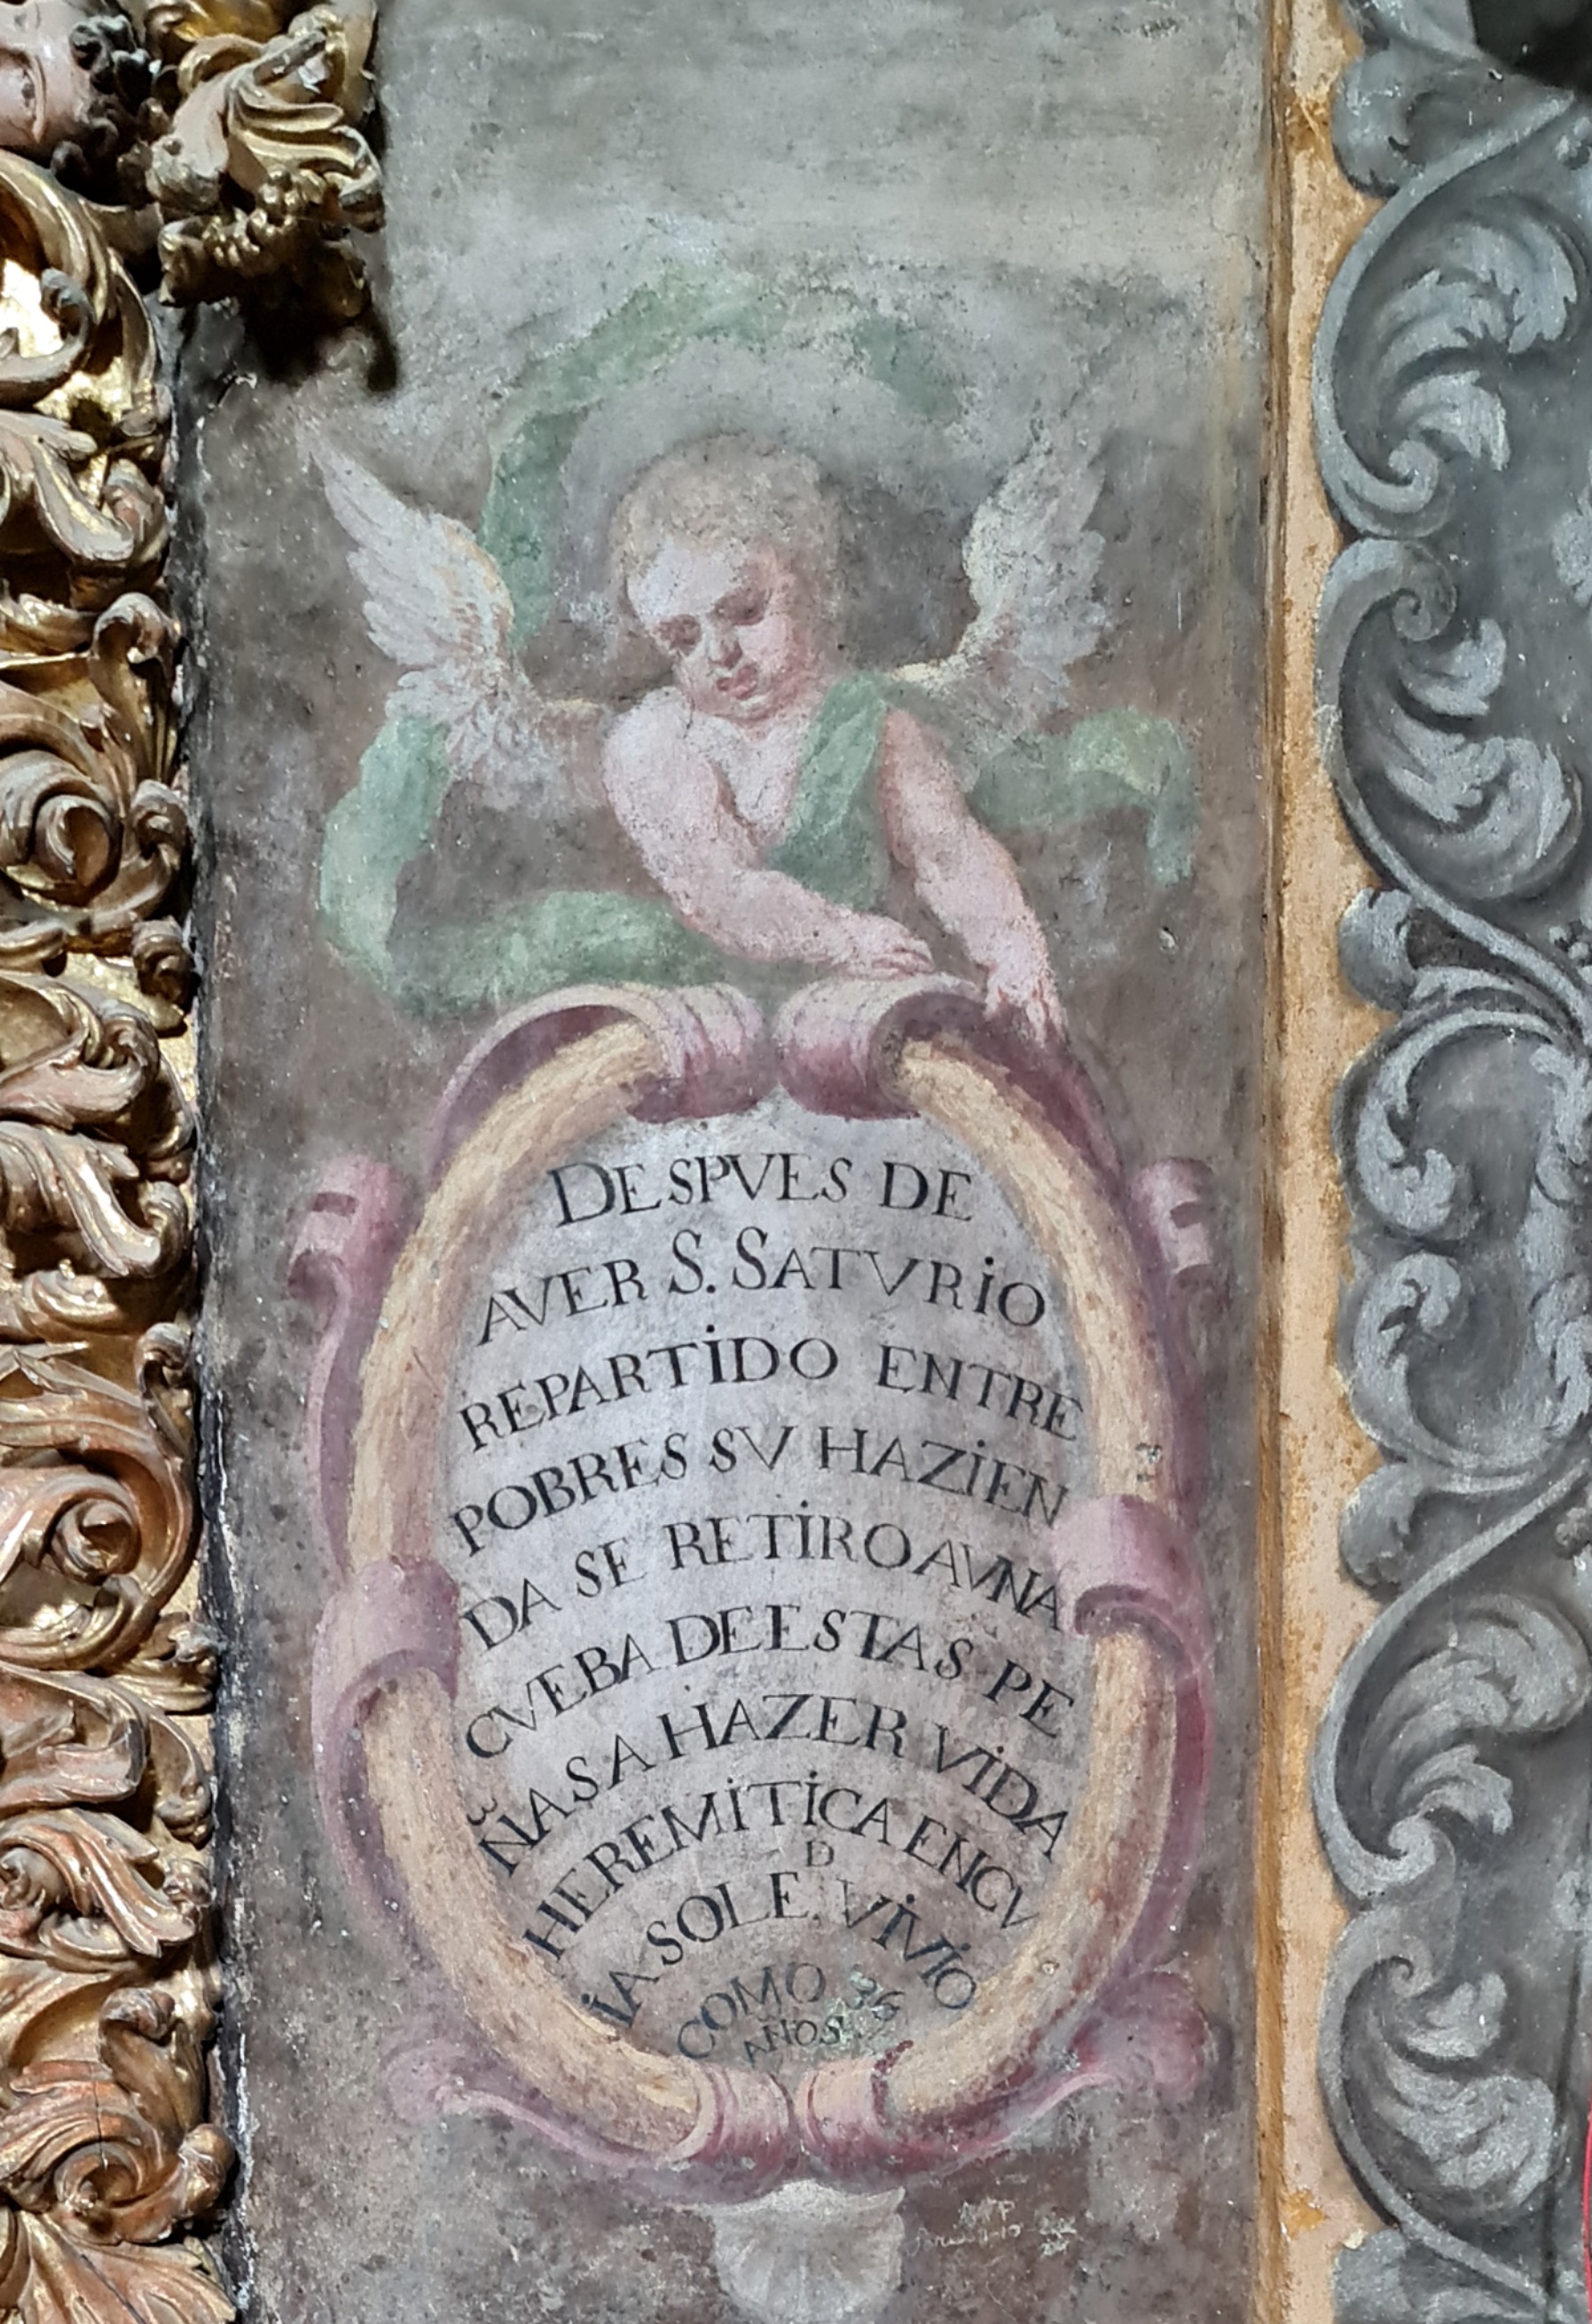 DESPVES DE
AVER S. SATVRIO
REPARTIDO ENTRE
POBRES SV HAZIEN
DA SE RETIRO AVNA
CVEBA DE ESTAS PE
ÑAS A HAZER VIDA
HEREMITICA EN CV
IA SOLE.D VIVIO
COMO 36
AÑOS